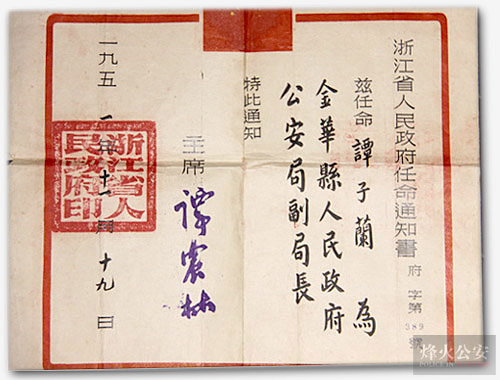 浙江省人民政府任命通知書
府字第389號
兹任命譚子蘭為
金華縣人民政府
公安局副局長
特此通知
主席 譚震林
一九五一年十一月十九日
浙江省人民政府印
烽火公安